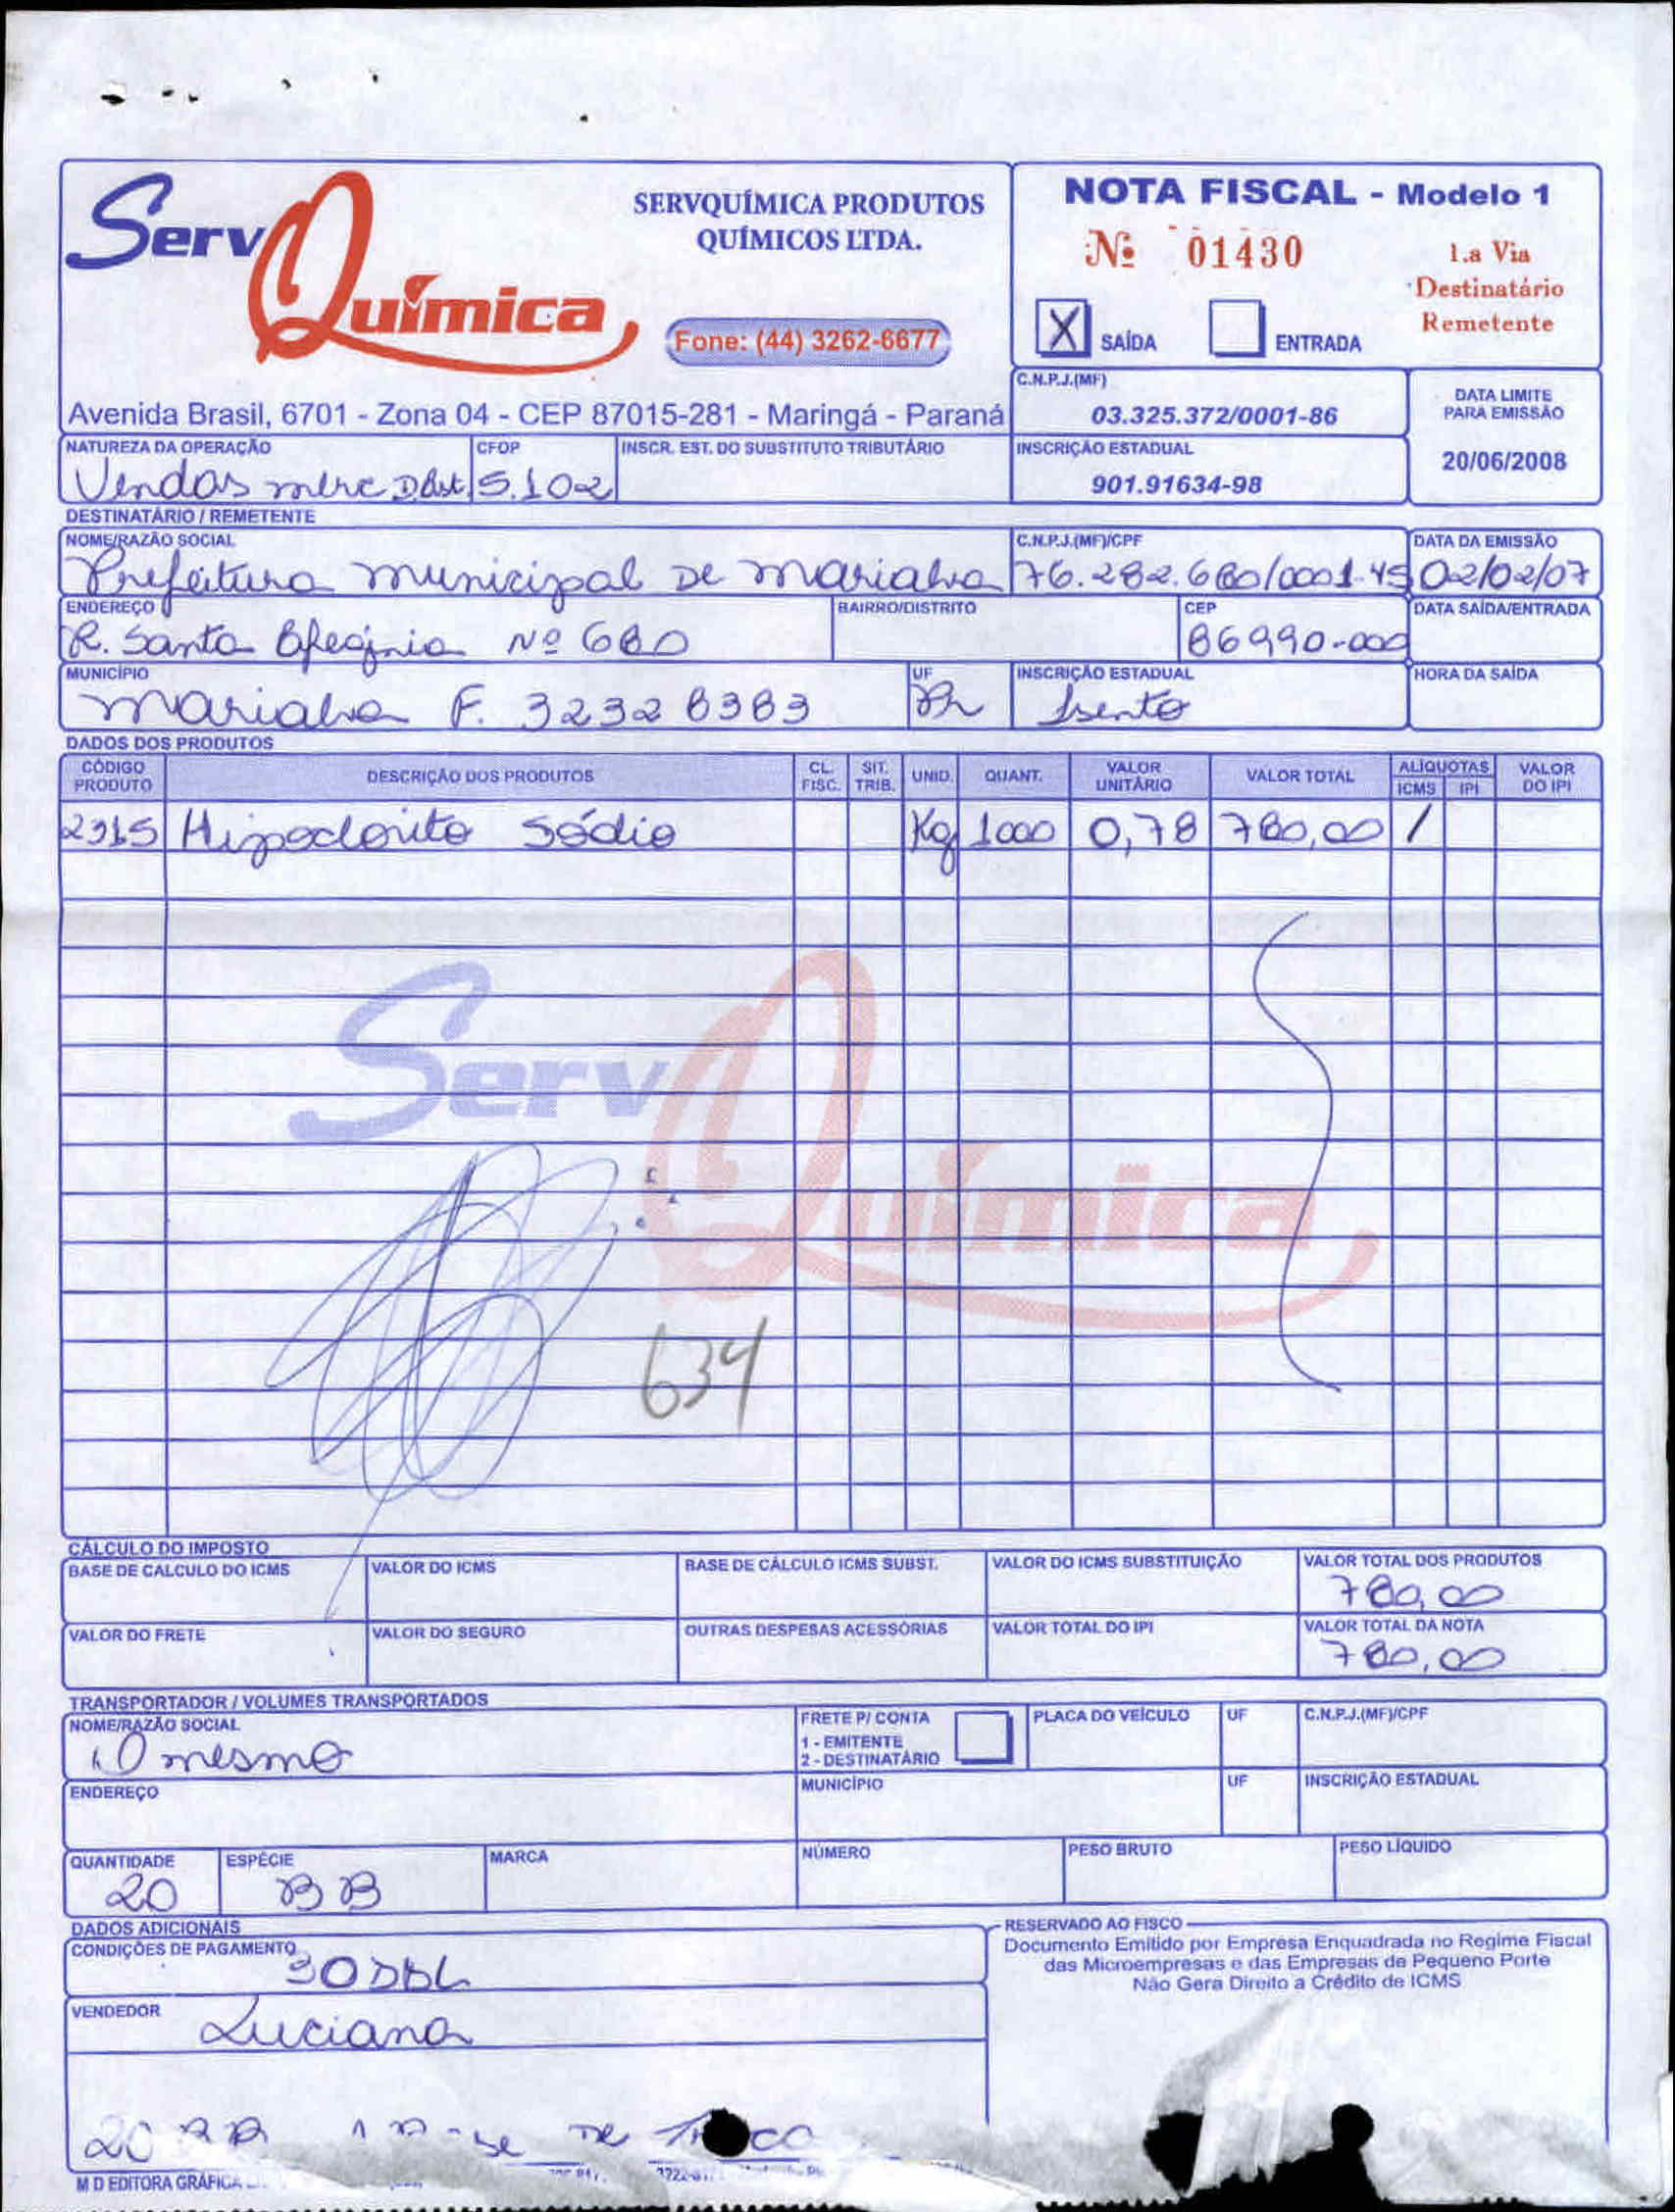 ServQuímica
SERVQUÍMICA PRODUTOS
QUÍMICOS LTDA.
Fone: (44) 3262-6677
Avenida Brasil, 6701 - Zona 04 - CEP 87015-281 - Maringá - Paraná
NOTA FISCAL - Modelo 1
Nº 01430
1.a Via
Destinatário
Remetente
X SAÍDA ENTRADA
C.N.P.J.(MF)
03.325.372/0001-86
DATA LIMITE
PARA EMISSÃO
20/06/2008
NATUREZA DA OPERAÇÃO CFOP INSCR. EST. DO SUBSTITUTO TRIBUTÁRIO INSCRIÇÃO ESTADUAL
Vendas merc 5.102 901.91634-98
DESTINATÁRIO / REMETENTE
NOME/RAZÃO SOCIAL C.N.P.J.(MF)/CPF DATA DA EMISSÃO
Prefeitura municipal De marialva 76.282.680/0001-45 02/02/07
ENDEREÇO BAIRRO/DISTRITO CEP DATA SAÍDA/ENTRADA
R. Santa Efegjnia Nº 680 86990-000
MUNICÍPIO UF INSCRIÇÃO ESTADUAL HORA DA SAÍDA
marialva F. 3232 8383 Pr Isento
DADOS DOS PRODUTOS
CÓDIGO PRODUTO DESCRIÇÃO DOS PRODUTOS CL. FISC. SIT. TRIB. UNID. QUANT. VALOR UNITÁRIO VALOR TOTAL ALÍQUOTAS ICMS IPI VALOR DO IPI
2315 Hipoclorito Sódio Kg 1000 0,78 780,00 /
ServQuímica
634
CÁLCULO DO IMPOSTO
BASE DE CÁLCULO DO ICMS VALOR DO ICMS BASE DE CÁLCULO ICMS SUBST. VALOR DO ICMS SUBSTITUIÇÃO VALOR TOTAL DOS PRODUTOS
780,00
VALOR DO FRETE VALOR DO SEGURO OUTRAS DESPESAS ACESSÓRIAS VALOR TOTAL DO IPI VALOR TOTAL DA NOTA
780,00
TRANSPORTADOR / VOLUMES TRANSPORTADOS
NOME/RAZÃO SOCIAL FRETE P/ CONTA PLACA DO VEÍCULO UF C.N.P.J.(MF)/CPF
1 - EMITENTE
2 - DESTINATÁRIO
O mesmo
ENDEREÇO MUNICÍPIO UF INSCRIÇÃO ESTADUAL
QUANTIDADE ESPÉCIE MARCA NÚMERO PESO BRUTO PESO LÍQUIDO
20 BB
DADOS ADICIONAIS
CONDIÇÕES DE PAGAMENTO
30 DDL
VENDEDOR
Luciana
RESERVADO AO FISCO
Documento Emitido por Empresa Enquadrada no Regime Fiscal
das Microempresas e das Empresas de Pequeno Porte
Não Gera Direito a Crédito de ICMS
20 BB
M D EDITORA GRÁFICA